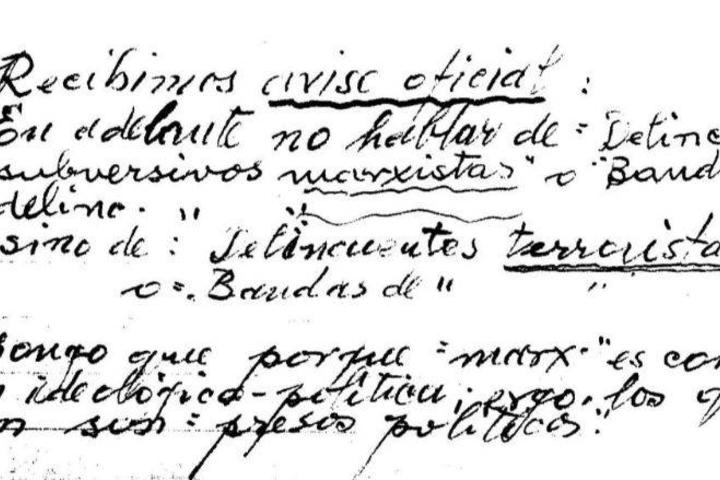 Recibimos aviso oficial :
En adelante no hablar de = Delinc
subversivos marxistas" o "Band
delinc. " "
sino de : Delincuentes terrorista
o =. Bandas de " "
pongo que porque =marx." es con
ideológica-política; ergo, los q
n son = presos políticos."